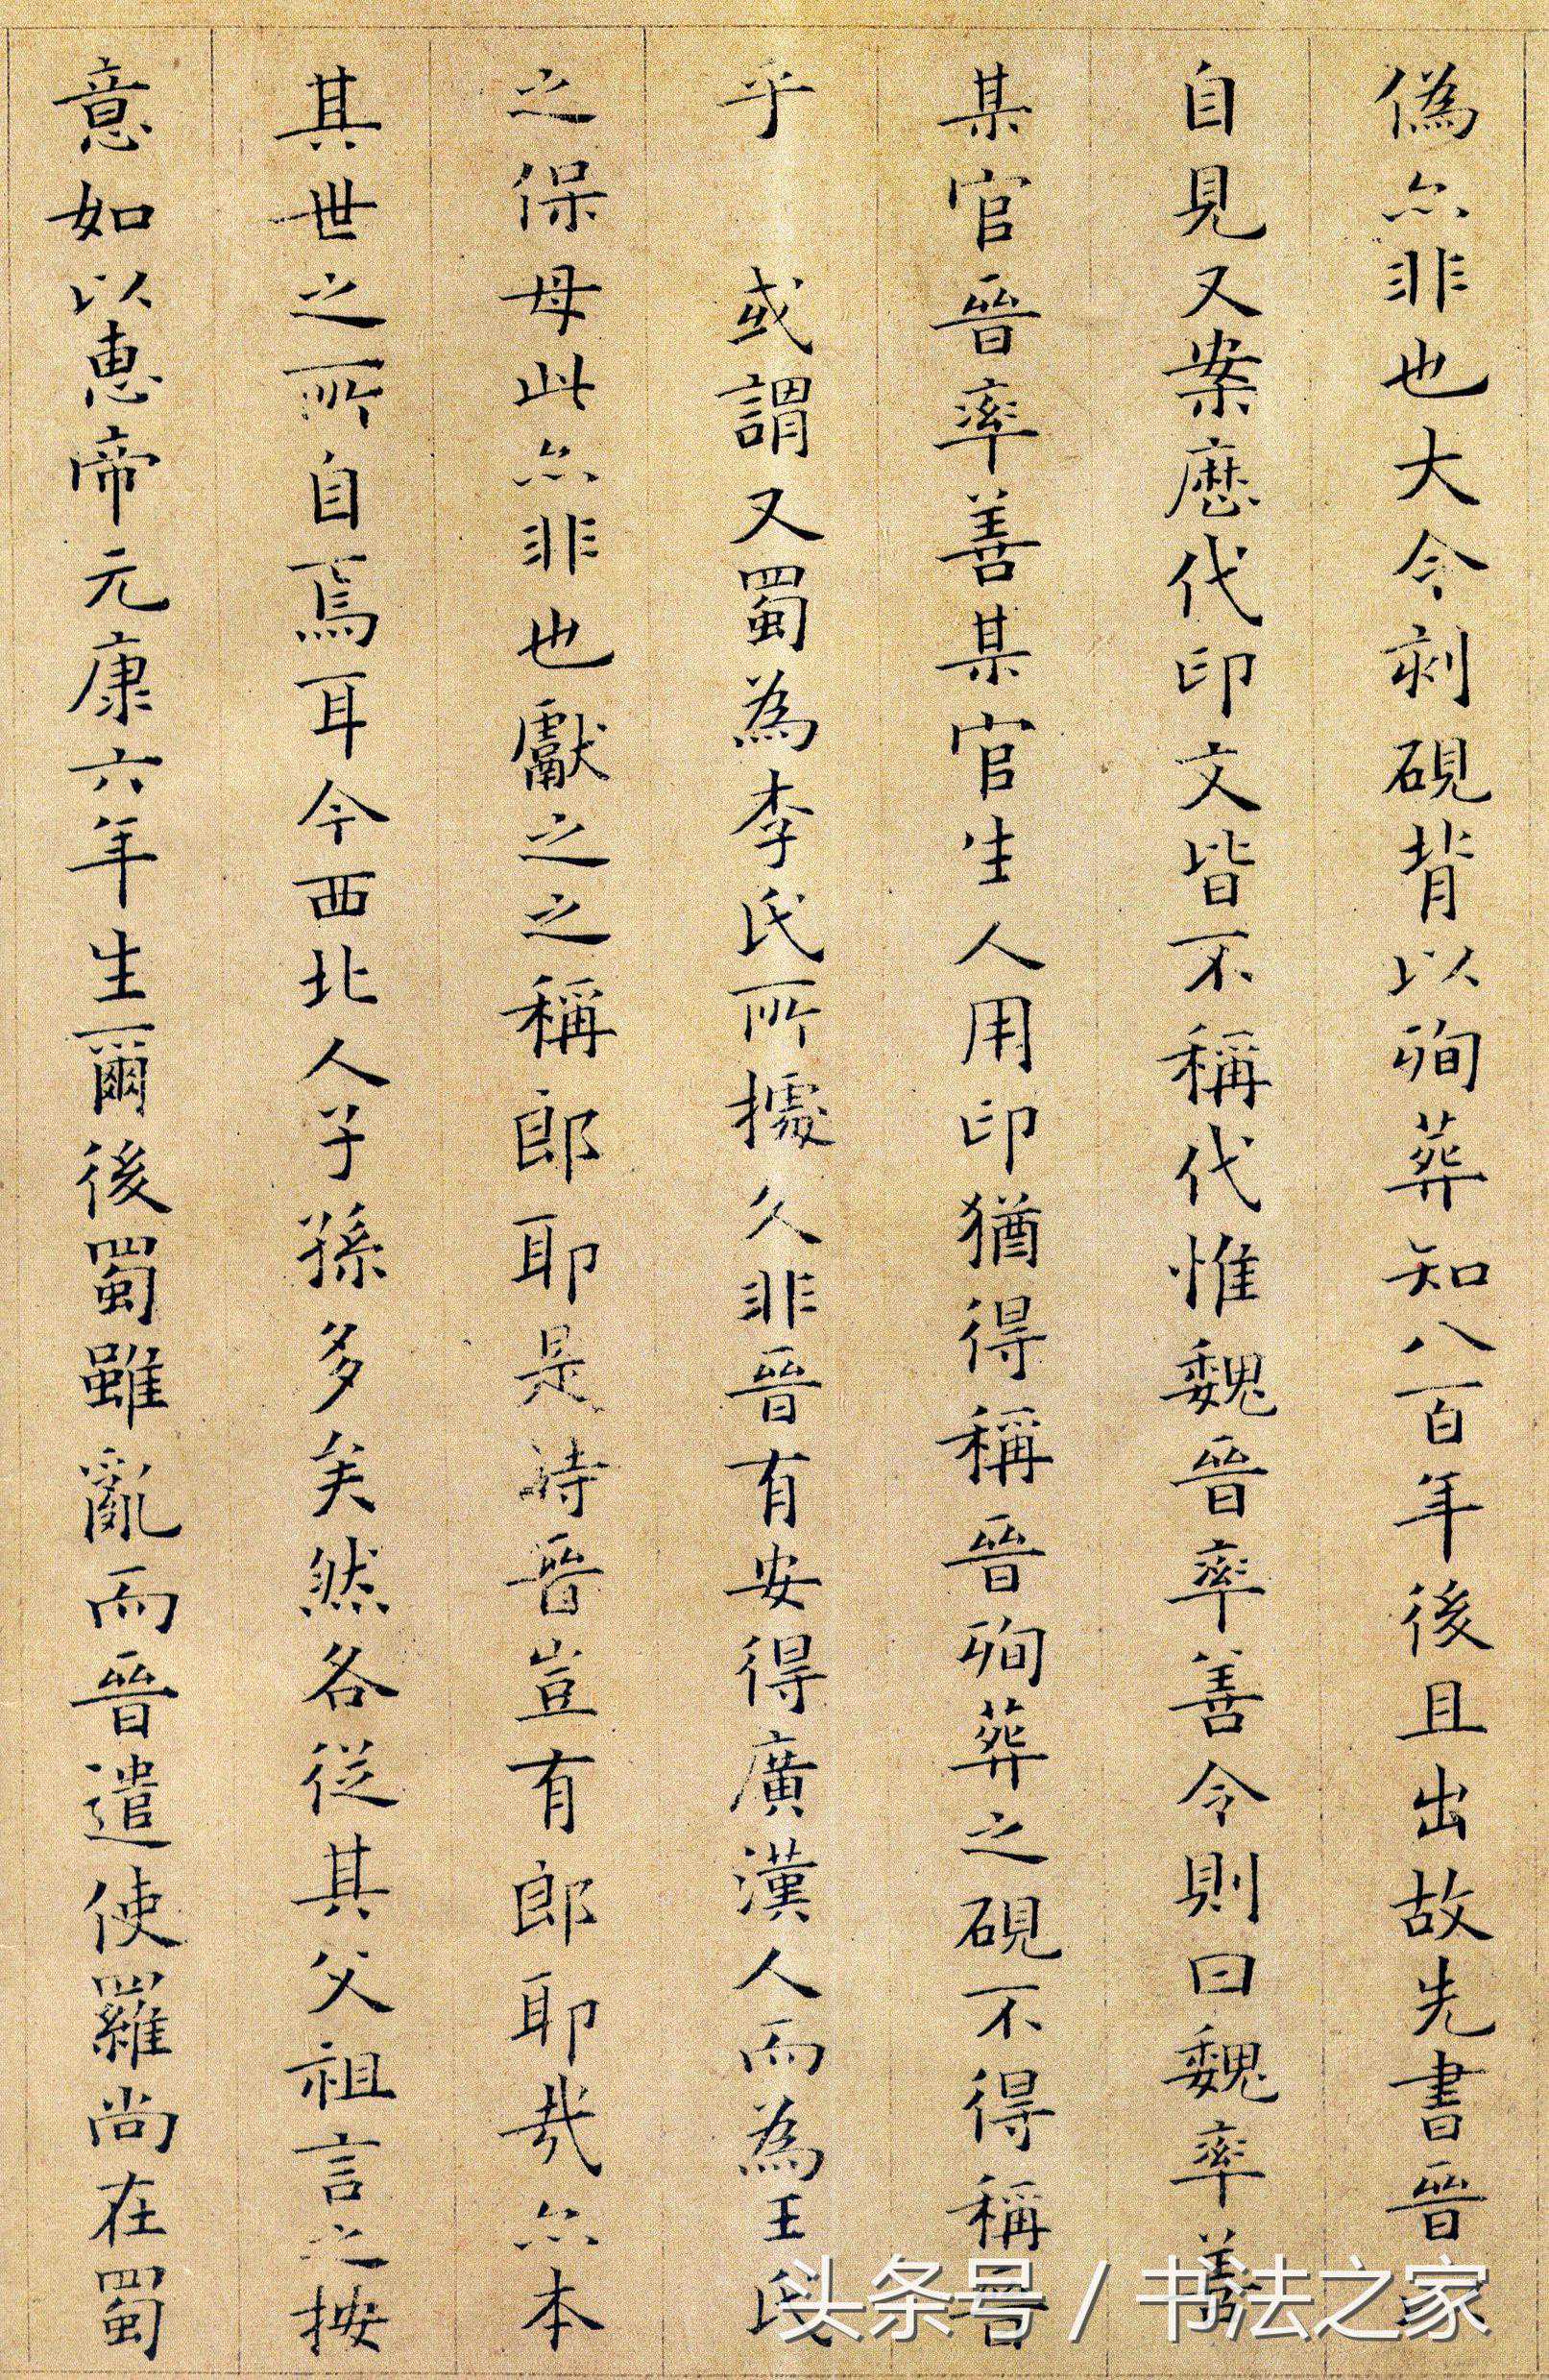 偽亦非也大令刻硯背以殉葬知八百年後且出故先書晉
自見又案歷代印文皆不稱代惟魏晉率善令則曰魏率善
某官晉率善某官生人用印猶得稱晉殉葬之硯不得稱晉
乎 或謂又蜀為李氏所據久非晉有安得廣漢人而為王氏
之保母此亦非也獻之之稱郎耶是時晉豈有郎耶哉亦本
其世之所自焉耳今西北人子孫多矣然各從其父祖言之按
意如以惠帝元康六年生爾後蜀雖亂而晉遣使羅尚在蜀
头条号 / 书法之家